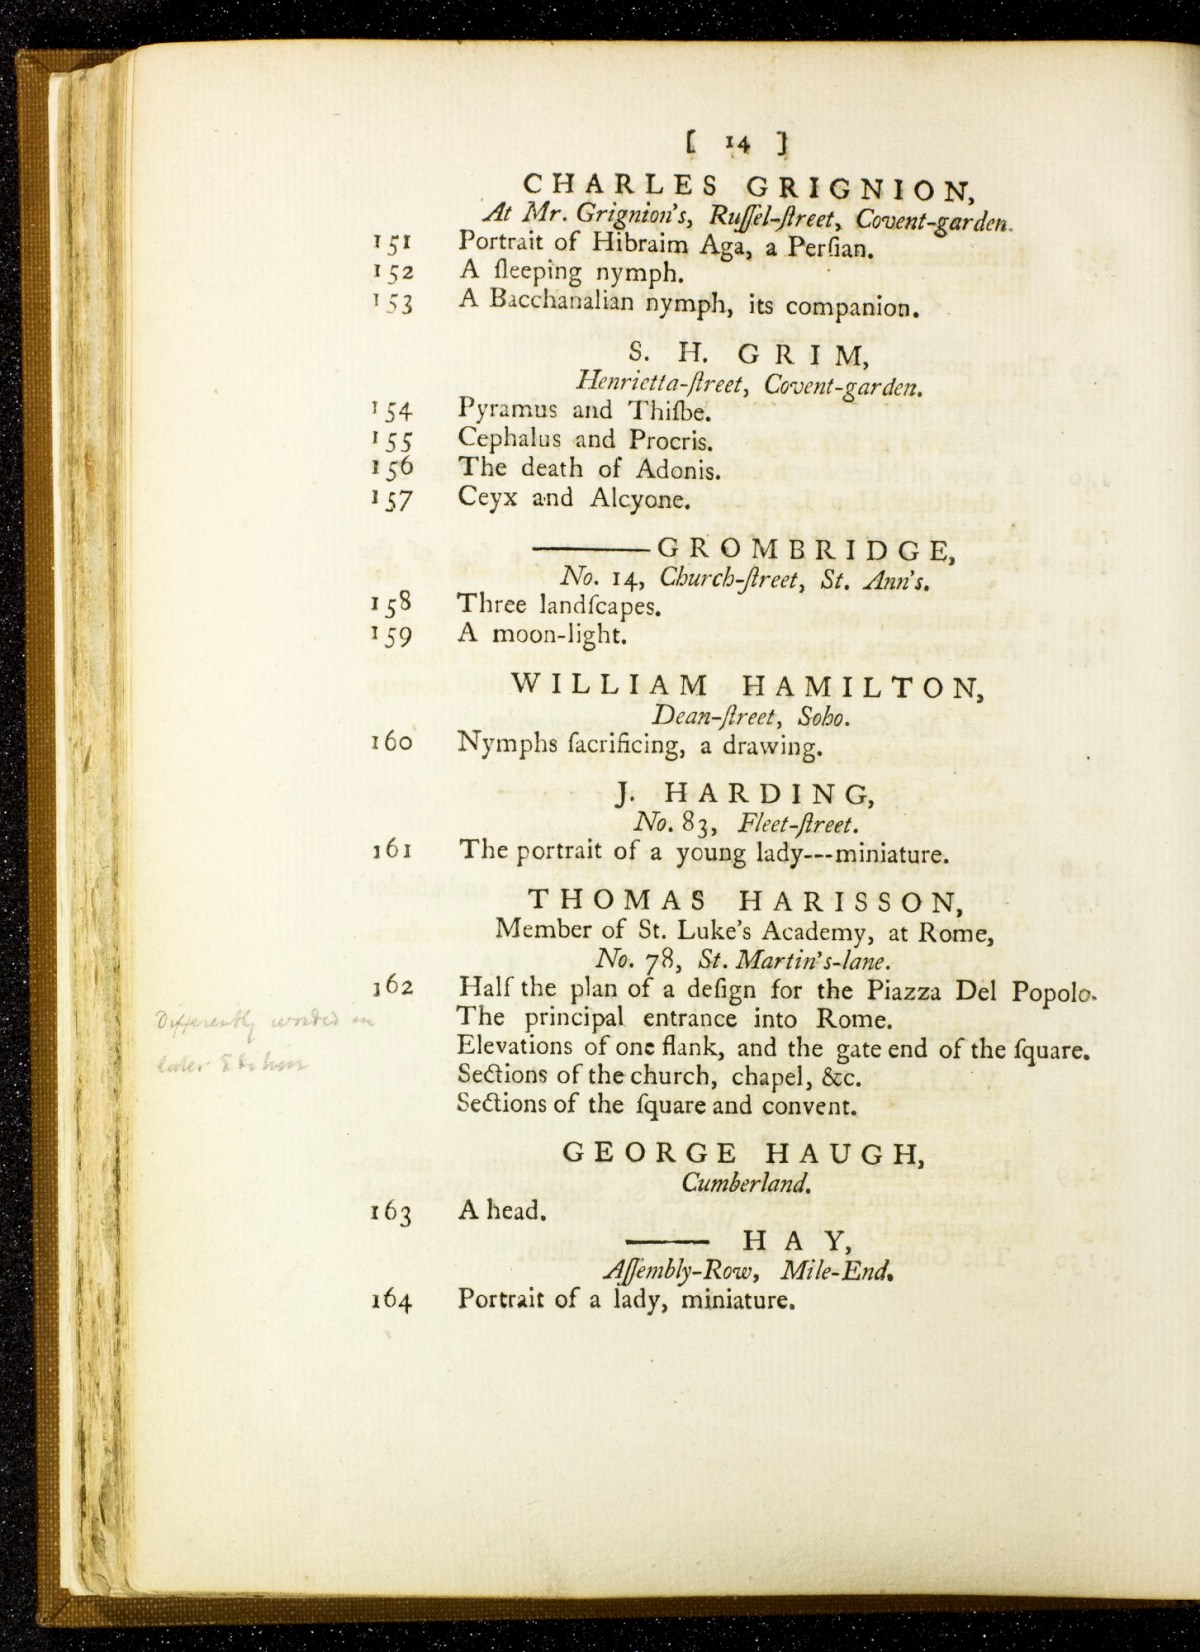 [ 14 ]
CHARLES GRIGNION,
At Mr. Grignion's, Ruſſel-ſtreet, Covent-garden.
151 Portrait of Hibraim Aga, a Perſian.
152 A ſleeping nymph.
153 A Bacchanalian nymph, its companion.
S. H. GRIM,
Henrietta-ſtreet, Covent-garden.
154 Pyramus and Thiſbe.
155 Cephalus and Procris.
156 The death of Adonis.
157 Ceyx and Alcyone.
——— GROMBRIDGE,
No. 14, Church-ſtreet, St. Ann's.
158 Three landſcapes.
159 A moon-light.
WILLIAM HAMILTON,
Dean-ſtreet, Soho.
160 Nymphs ſacrificing, a drawing.
J. HARDING,
No. 83, Fleet-ſtreet.
161 The portrait of a young lady---miniature.
THOMAS HARISSON,
Member of St. Luke's Academy, at Rome,
No. 78, St. Martin's-lane.
162 Half the plan of a deſign for the Piazza Del Popolo.
The principal entrance into Rome.
Elevations of one flank, and the gate end of the ſquare.
Sections of the church, chapel, &c.
Sections of the ſquare and convent.
Differently worded in
later Edition
GEORGE HAUGH,
Cumberland.
163 A head.
——— HAY,
Aſſembly-Row, Mile-End.
164 Portrait of a lady, miniature.